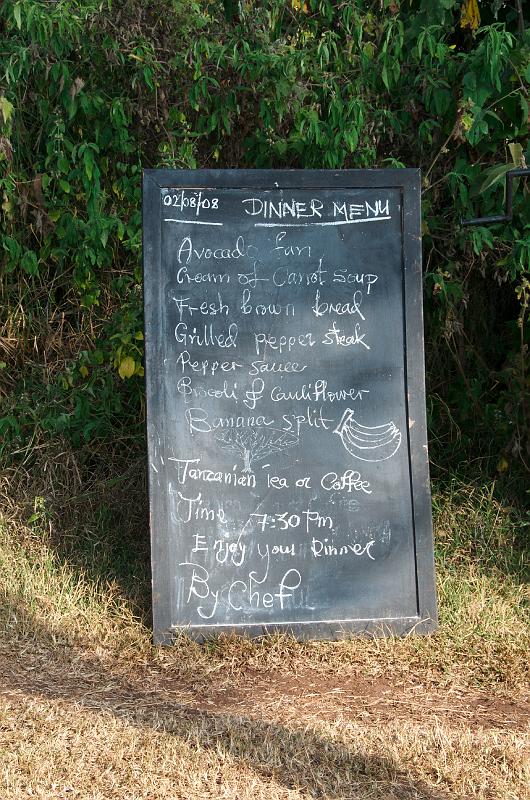 02/08/08 DINNER MENU
Avocado fan
Cream of Carrot Soup
Fresh brown bread
Grilled pepper steak
Pepper sauce
Brocoli & Cauliflower
Banana split
Tanzanian Tea or Coffee
Time 7:30 Pm
Enjoy your Dinner
By Chef